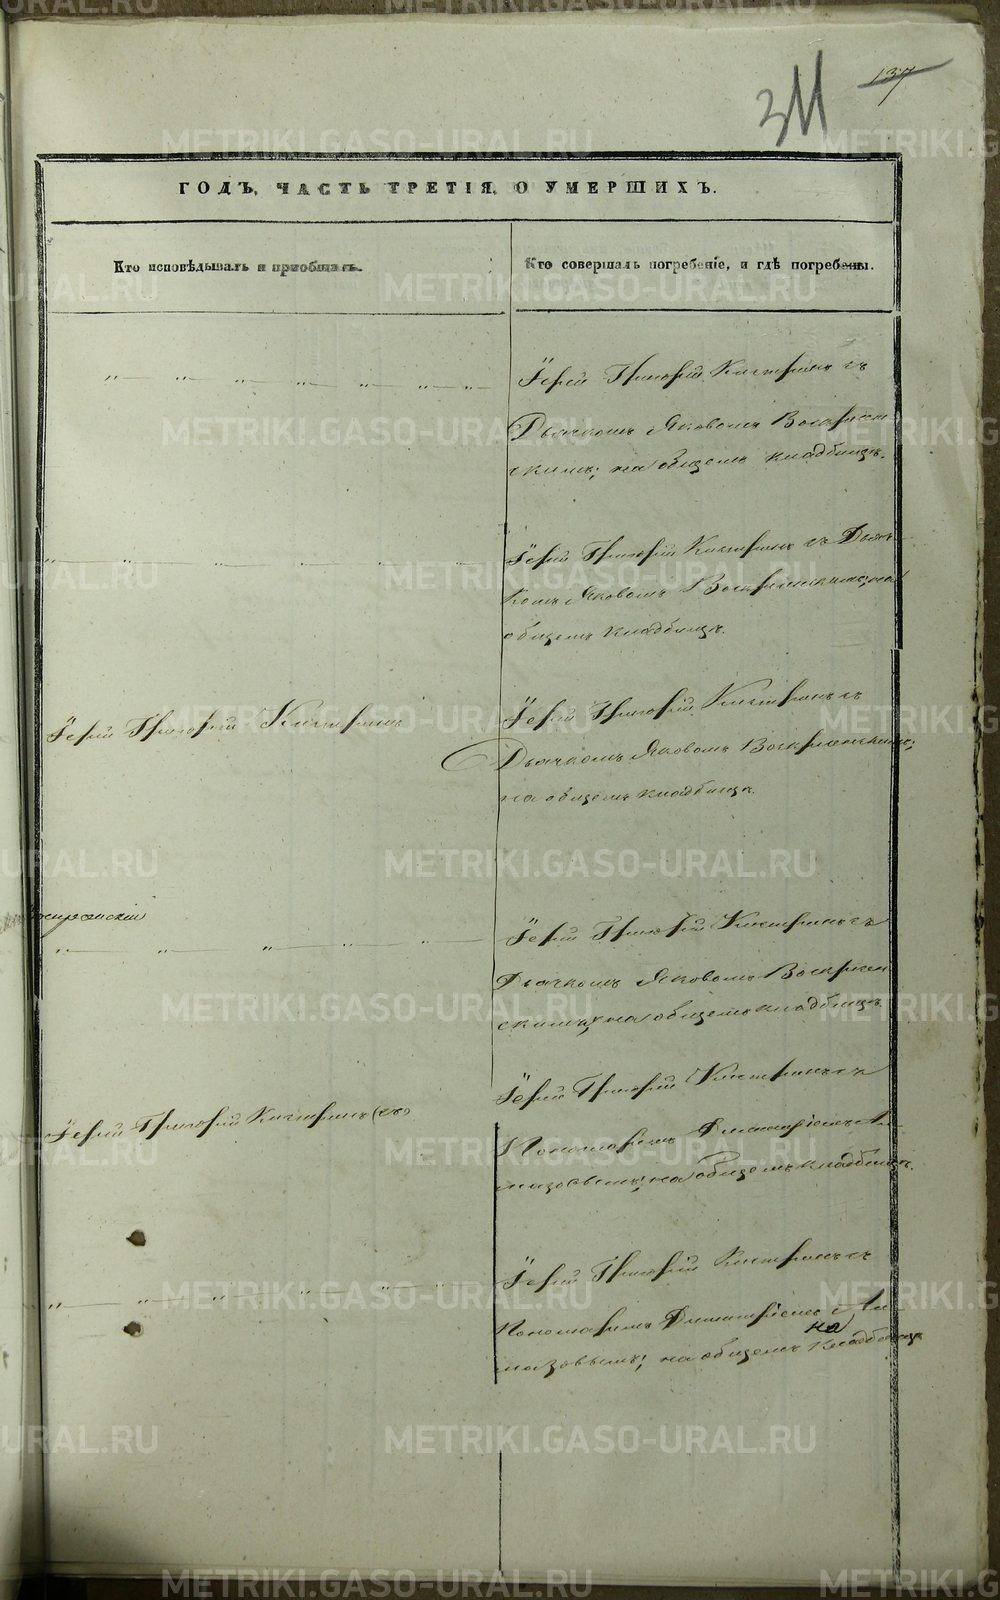 137
311
ГОДЪ, ЧАСТЬ ТРЕТІЯ, О УМЕРШИХЪ.
Кто исповѣдывалъ и пріобщалъ.
Кто совершалъ погребеніе, и гдѣ погребены.
Іерей Григорій Кистринъ съ
Дьячкомъ Яковомъ Воскресен-
скимъ; на общемъ кладбищѣ.
Іерей Григорій Кистринъ съ Дьяч
комъ Яковомъ Воскресенскимъ; на
общемъ кладбищѣ.
Іерей Григорій Кистринъ
Іерей Григорій Кистринъ съ
Дьячкомъ Яковомъ Воскресенскимъ;
на общемъ кладбищѣ.
Іерей Григорій Кистринъ съ
Дьячкомъ Яковомъ Воскресен
скимъ; на общемъ кладбищѣ
Іерей Григорій Кистринъ
Іерей Григорій Кистринъ съ
Пономаремъ Димитріемъ Ал-
мазовымъ; на общемъ кладбищѣ.
Іерей Григорій Кистринъ съ
Пономаремъ Димитріемъ Ал
мазовымъ; на общемъ кладбищѣ
METRIKI.GASO-URAL.RU